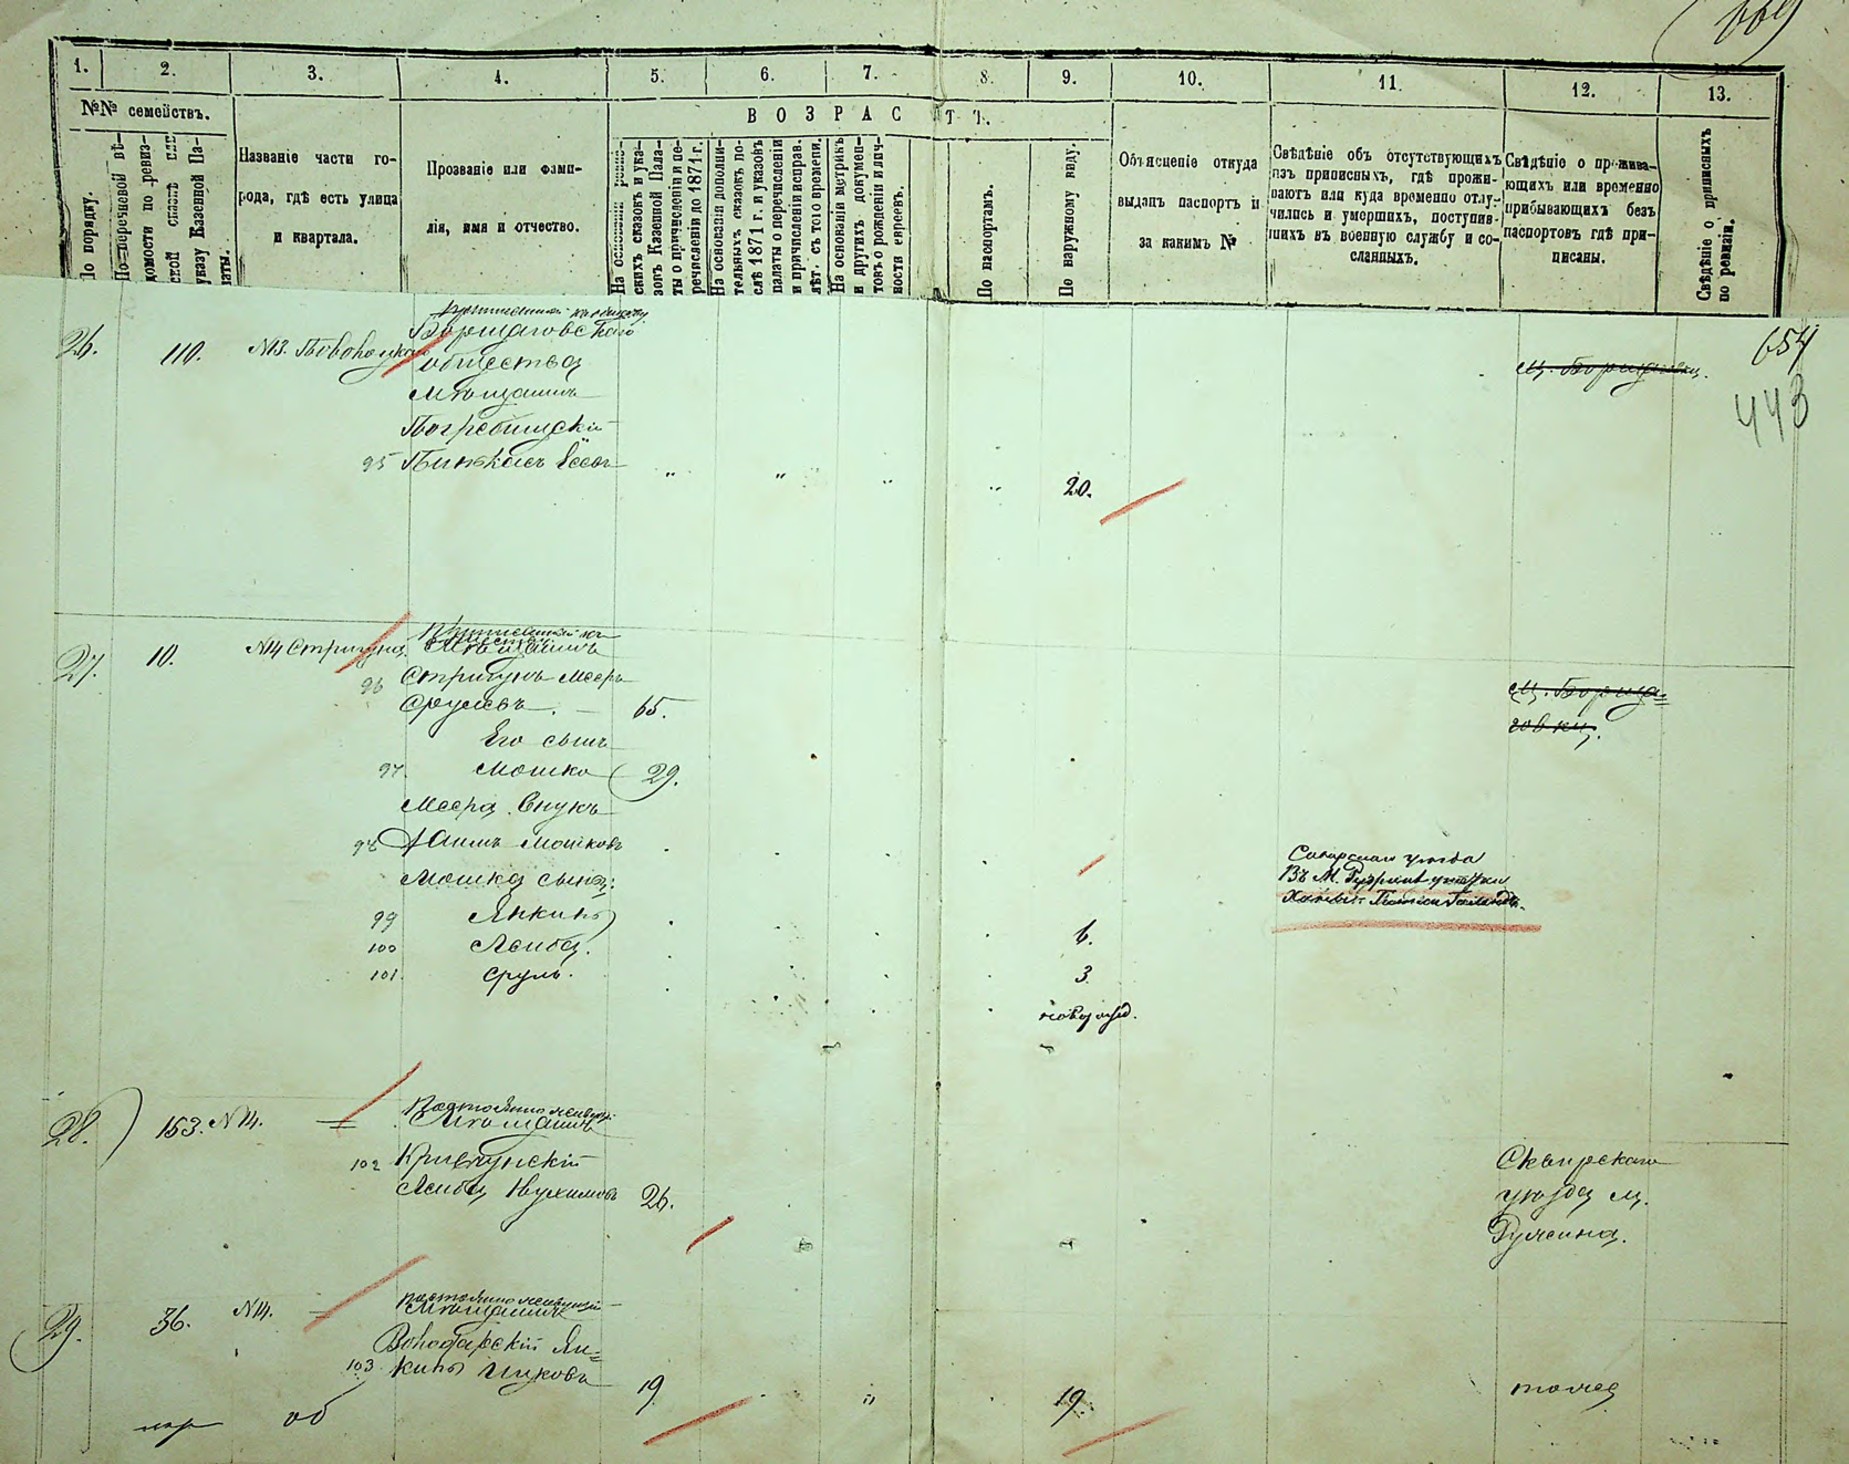 669
1. 2. 3. 4. 5. 6. 7. 8. 9. 10. 11. 12. 13.
№№ семействъ.
По порядку.
По перечневой вѣ-
домости по ревиз-
ской сказкѣ или
указу Казенной Па-
латы.
Названіе части го-
рода, гдѣ есть улица
и квартала.
Прозваніе или фами-
лія, имя и отчество.
ВОЗРАСТЪ.
На основаніи реви-
скихъ сказокъ и ука-
зовъ Казенной Пала-
ты о причисленіи и пе-
речисленіи до 1871 г.
На основаніи дополни-
тельныхъ сказокъ по-
слѣ 1871 г. и указовъ
палаты о перечисленіи
и причисленіи исправ.
лѣт. съ того времени.
На основаніи метрикъ
и другихъ докумен-
товъ о рожденіи и лич-
ности евреевъ.
По паспортамъ.
По наружному виду.
Объясненіе откуда
выданъ паспортъ и
за какимъ №
Свѣдѣніе объ отсутствующихъ
изъ приписныхъ, гдѣ прожи-
ваютъ или куда временно отлу-
чились и умершихъ, поступив-
шихъ въ военную службу и со-
сланныхъ.
Свѣдѣніе о прожива-
ющихъ или временно
прибывающихъ безъ
паспортовъ гдѣ при-
писаны.
Свѣдѣніе о приписныхъ
по ревизіи.
654
443
26. 110. №13.
Борщаговскаго
общества
Мѣщанинъ
Погребищскій
95 Пинькасъ Іосевъ " " " " 20.
м. Борщаговки.
27. 10. №14 Стригуна
Мѣщанинъ
96 Стригунъ Мееръ
Срулевъ. — 65.
м. Борща=
говки.
Его сынъ
97. Мошко 29.
Меера внукъ
98 Хаимъ Мошковъ
Мошка сыны:
99 Янкель
100 Лейба. 6.
101. Сруль. 3
новорожд.
уѣзда
Въ М.
28. 153. №14. =
Постоянно живущ.
Мѣщанинъ
102 Кривчунскій
Лейба Нухимовъ 26.
Сквирскаго
уѣзда м.
Ружина.
29. 36. №14. =
постоянно живущій
Мѣщанинъ
Володарскій Ян=
103 кель Ицковъ 19 " 19.
тоже
об